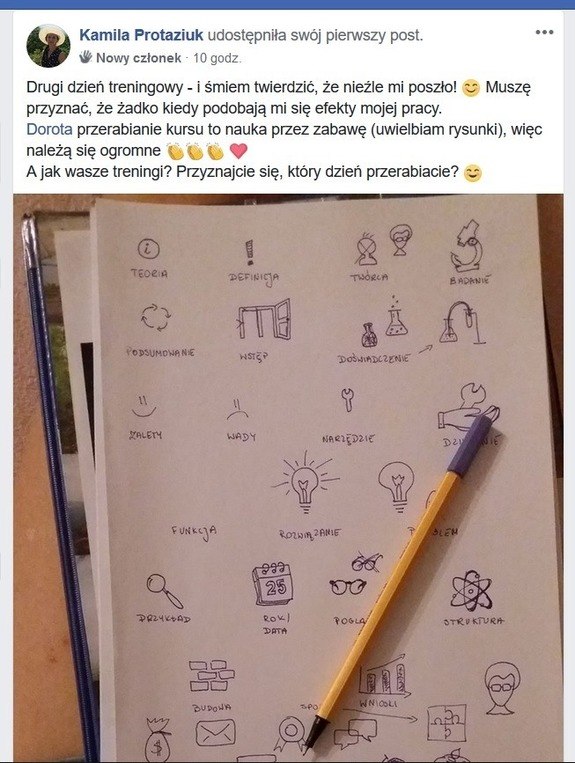 Kamila Protaziuk udostępniła swój pierwszy post.
Nowy członek · 10 godz.
Drugi dzień treningowy - i śmiem twierdzić, że nieźle mi poszło! 😊 Muszę
przyznać, że żadko kiedy podobają mi się efekty mojej pracy.
Dorota przerabianie kursu to nauka przez zabawę (uwielbiam rysunki), więc
należą się ogromne 👏👏👏 ❤
A jak wasze treningi? Przyznajcie się, który dzień przerabiacie? 😊
TEORIA DEFINICJA TWÓRCA BADANIE
PODSUMOWANIE WSTĘP DOŚWIADCZENIE
ZALETY WADY NARZĘDZIE
FUNKCJA ROZWIĄZANIE
25
PRZYKŁAD ROK/ STRUKTURA
DATA
BUDOWA WNIOSKI
$